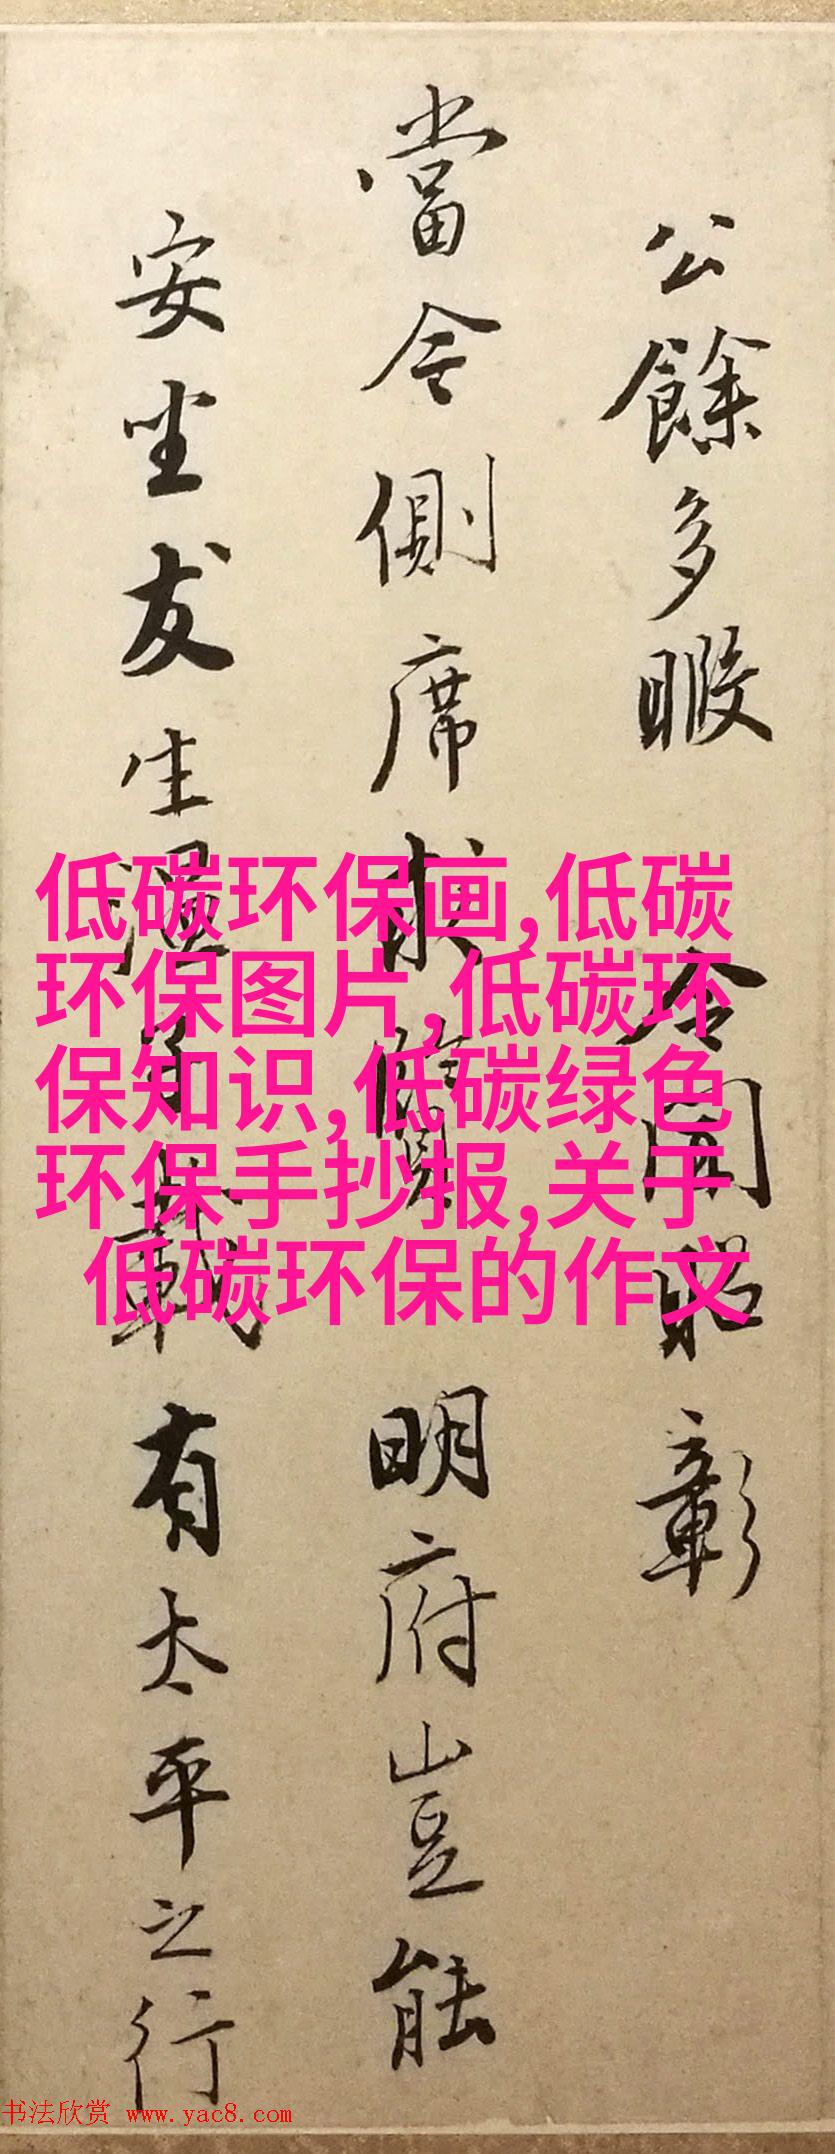 公餘多暇 令聞昭彰
當今側席求賢 明府豈能
安坐友生溫 載有太平之行
低碳环保画,低碳
环保图片,低碳环
保知识,低碳绿色
环保手抄报,关于
低碳环保的作文
书法欣赏 www.yac8.com